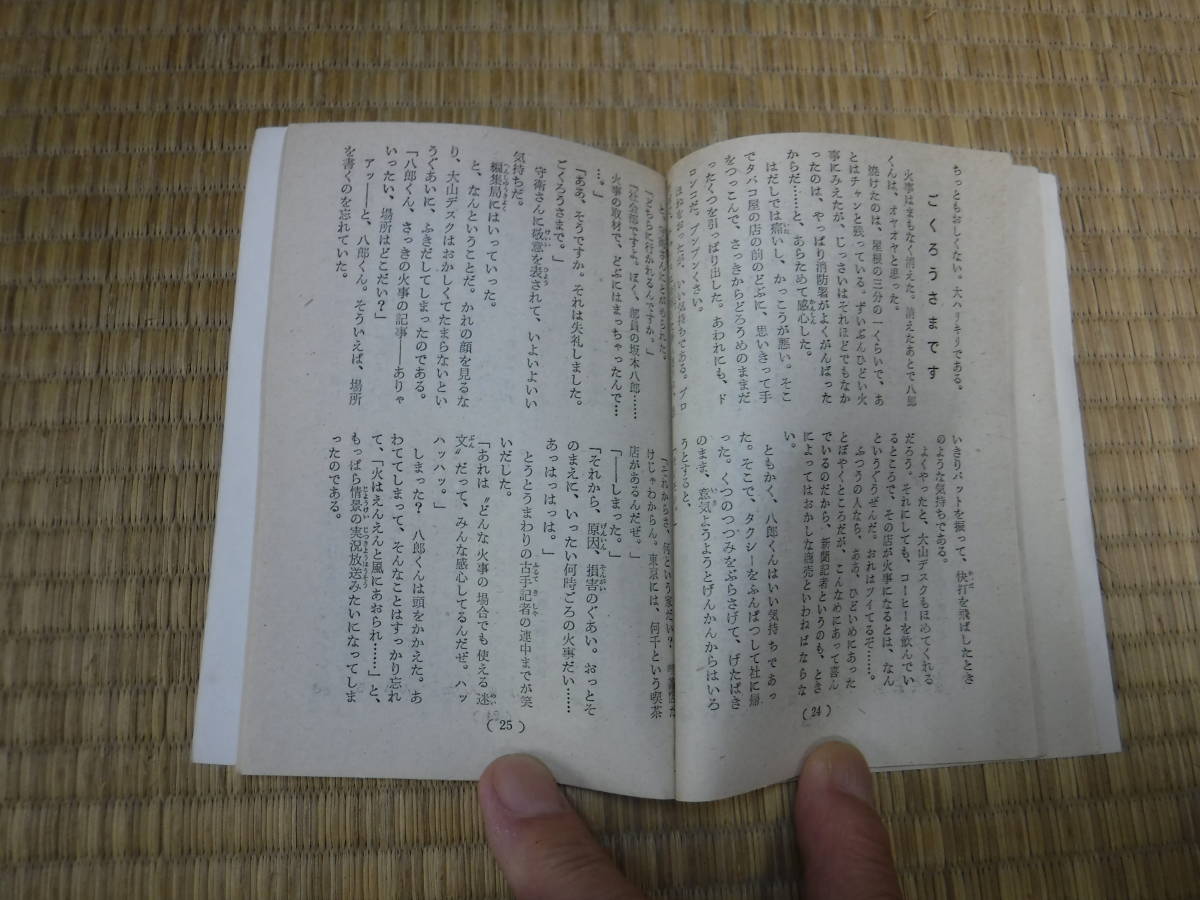 ちっともおしくない。大ハリキリである。
ごくろうさまです
火事はまもなく消えた。消えたあとで八郎
くんは、オヤオヤと思った。
焼けたのは、屋根の三分の一くらいで、あ
とはチャンと残っている。ずいぶんひどい火
事にみえたが、じっさいはそれほどでもなか
ったのは、やっぱり消防署がよくがんばった
からだ……と、あらためて感心した。
はだしでは痛いし、かっこうが悪い。そこ
でタバコ屋の店の前のどぶに、思いきって手
をつっこんで、さっきからどろうめのままだ
ったくつを引っぱり出した。あわれにも、ド
ロンコだ。プンプンくさい。
いい気持ちである。ブロ
いきりバットを振って、快打を飛ばしたとき
のような気持ちである。
よくやったと、大山デスクもほめてくれる
だろう。それにしても、コーヒーを飲んでい
るところで、その店が火事になるとは、なん
というぐうぜんだ。おれはツイてるぞ……。
ふつうの人なら、ああ、ひどいめにあった
とぼやくところだが、こんなめにあって喜ん
でいるのだから、新聞記者というのも、とき
によってはおかしな商売といわねばならな
い。
ともかく、八郎くんはいい気持ちであっ
た。そこで、タクシーをふんぱつして社に帰
った。くつのつつみをぶらさげて、げたばき
のまま、意気ようようとげんかんからはいろ
うとすると、
(24)
「どちらに行かれるんですか。」
「社会部ですよ。ぼく、部員の坂本八郎……
火事の取材で、どぶにはまっちゃったんで…
…。」
「ああ、そうですか。それは失礼しました。
ごくろうさまで。」
守衛さんに敬意を表されて、いよいよいい
気持ちだ。
編集局にはいっていった。
と、なんということだ。かれの顔を見るな
り、大山デスクはおかしくてたまらないとい
うぐあいに、ふきだしてしまったのである。
「八郎くん、さっきの火事の記事——ありゃ
いったい、場所はどこだい？」
アッ——と、八郎くん。そういえば、場所
を書くのを忘れていた。
「それからさ、何という家だい？
けじゃわからん。東京には、何千という喫茶
店があるんだぜ。」
「——しまった。」
「それから、原因、損害のぐあい。おっとそ
のまえに、いったい何時ごろの火事だい……
あっはっはっは。」
とうとうまわりの古手記者の連中までが笑
いだした。
「あれは〝どんな火事の場合でも使える迷
文〟だって、みんな感心してるんだぜ。ハッ
ハッハッ。」
しまった？　八郎くんは頭をかかえた。あ
わててしまって、そんなことはすっかり忘れ
て、「火はえんえんと風にあおられ……」と、
もっぱら情景の実況放送みたいになってしま
ったのである。
(25)